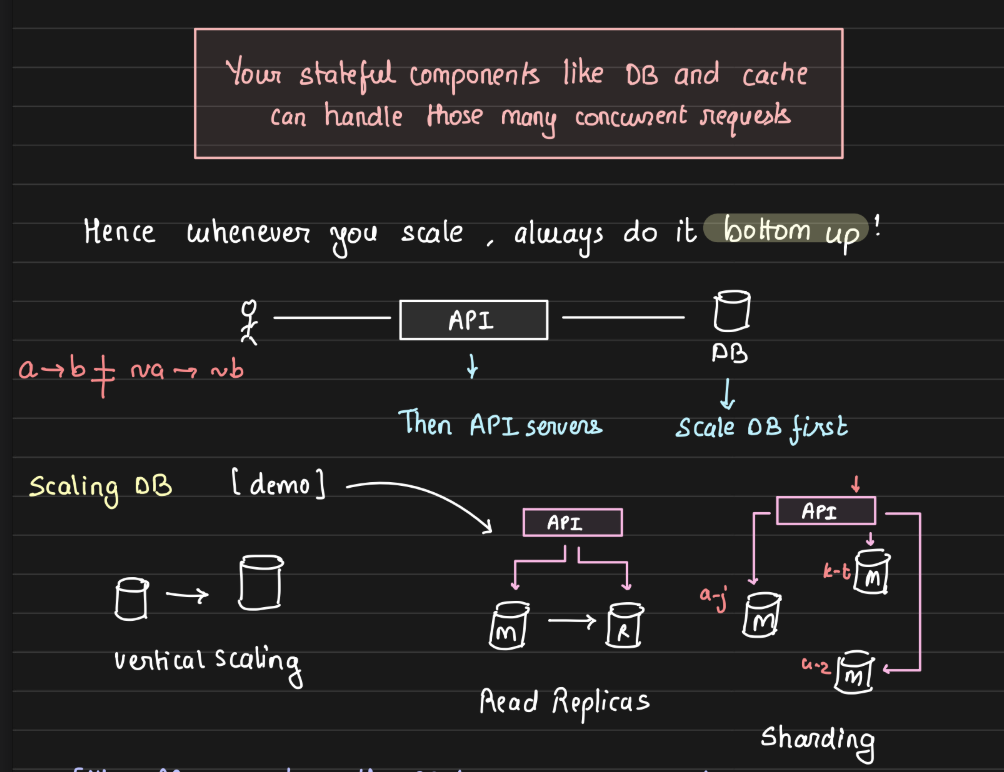 Your stateful components like DB and cache
can handle those many concurrent requests
Hence whenever you scale, always do it bottom up!
API
DB
a → b ≠ ~a → ~b
Then API servers
Scale DB first
Scaling DB [demo]
API
API
k-t
M
a-j
M
M
R
u-z
M
vertical scaling
Read Replicas
Sharding